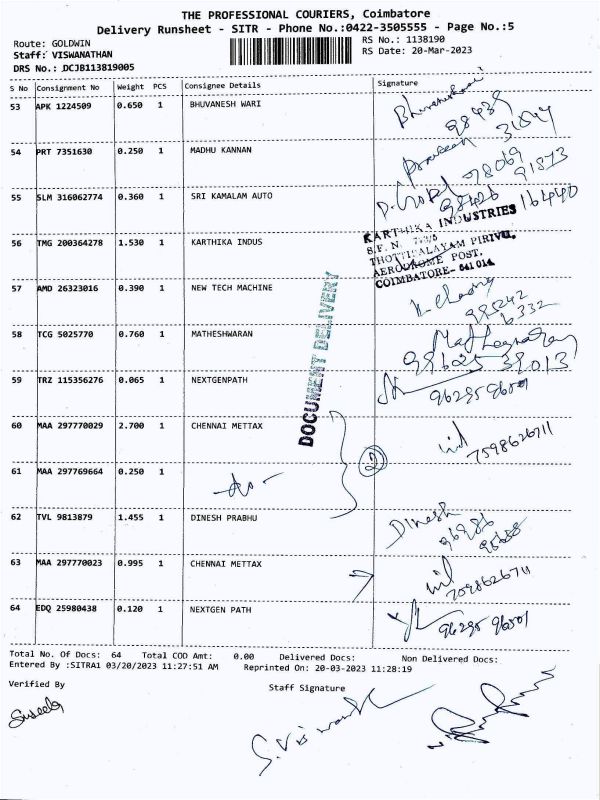 THE PROFESSIONAL COURIERS, Coimbatore
Delivery Runsheet - SITR - Phone No.:0422-3505555 - Page No.:5
Route: GOLDWIN
Staff: VISWANATHAN
DRS No.: DCJB113819005
RS No.: 1138190
RS Date: 20-Mar-2023
S No Consignment No Weight PCS Consignee Details Signature
53 APK 1224509 0.650 1 BHUVANESH WARI
98439
31897
54 PRT 7351630 0.250 1 MADHU KANNAN
98069
91873
55 SLM 316062774 0.360 1 SRI KAMALAM AUTO
98426 16440
56 TMG 200364278 1.530 1 KARTHIKA INDUS
KARTHIKA INDUSTRIES
S.F. N.
THOTTIPALAYAM PIRIVU,
AERODROME POST,
COIMBATORE- 641 014
57 AMD 26323016 0.390 1 NEW TECH MACHINE
98242
6332
58 TCG 5025770 0.760 1 MATHESHWARAN
98625 39013
59 TRZ 115356276 0.065 1 NEXTGENPATH
96295 96501
DOCUMENT DELIVERY
60 MAA 297770029 2.700 1 CHENNAI METTAX
7598626711
2
61 MAA 297769664 0.250 1
-do-
62 TVL 9813879 1.455 1 DINESH PRABHU
Dinesh
96986
63 MAA 297770023 0.995 1 CHENNAI METTAX
7598626711
64 EDQ 25980438 0.120 1 NEXTGEN PATH
96295 96501
Total No. Of Docs: 64 Total COD Amt: 0.00 Delivered Docs: Non Delivered Docs:
Entered By :SITRA1 03/20/2023 11:27:51 AM Reprinted On: 20-03-2023 11:28:19
Verified By
Staff Signature
Suseela
S. Viswanath